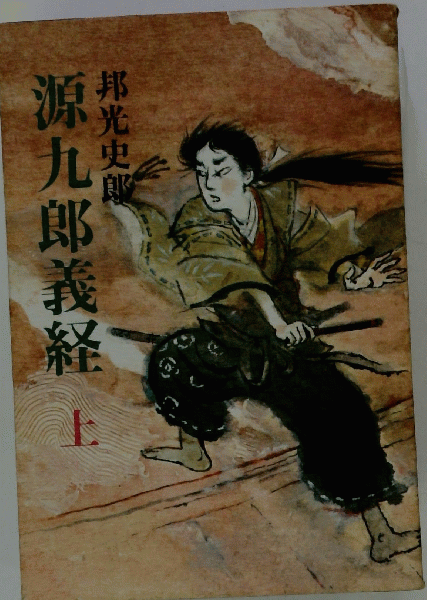 邦光史郎
源九郎義経
上